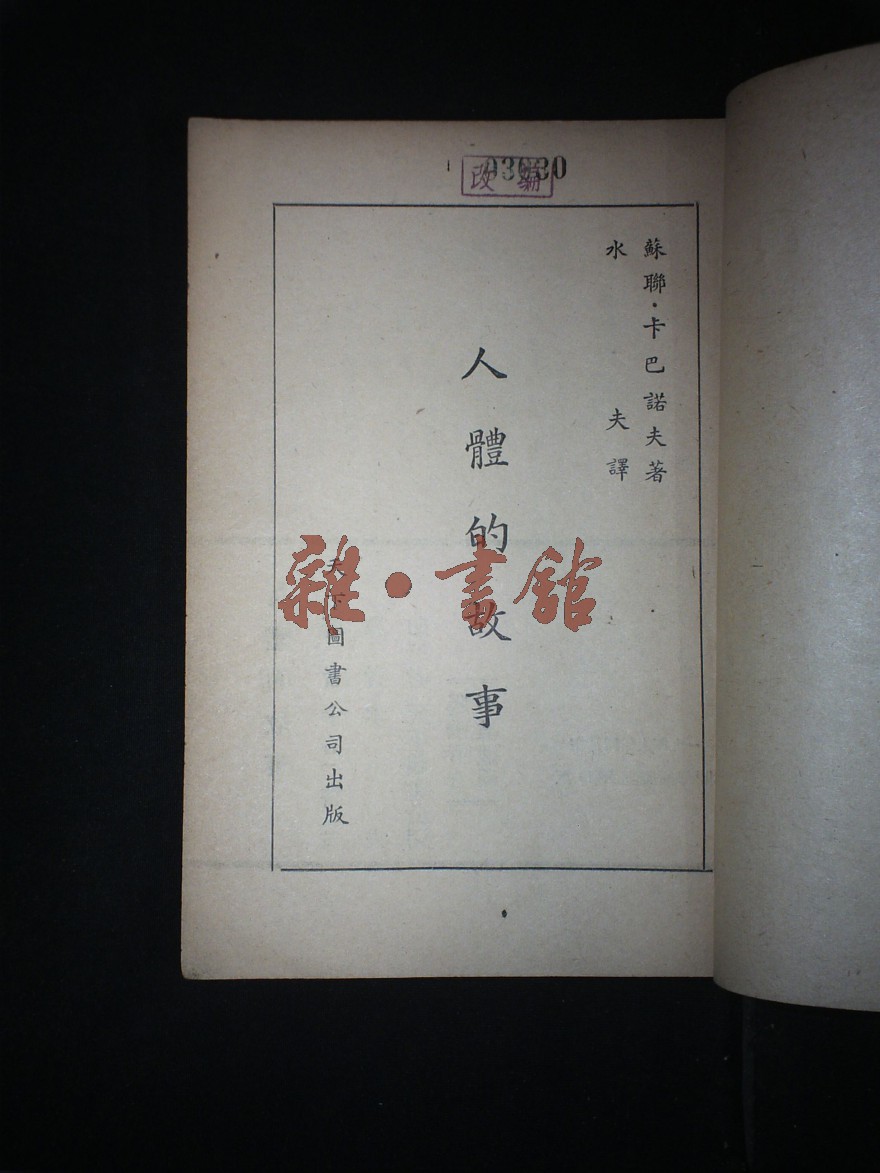 改編
蘇聯·卡巴諾夫著
水夫譯
人體的故事
天下圖書公司出版
雜·書館